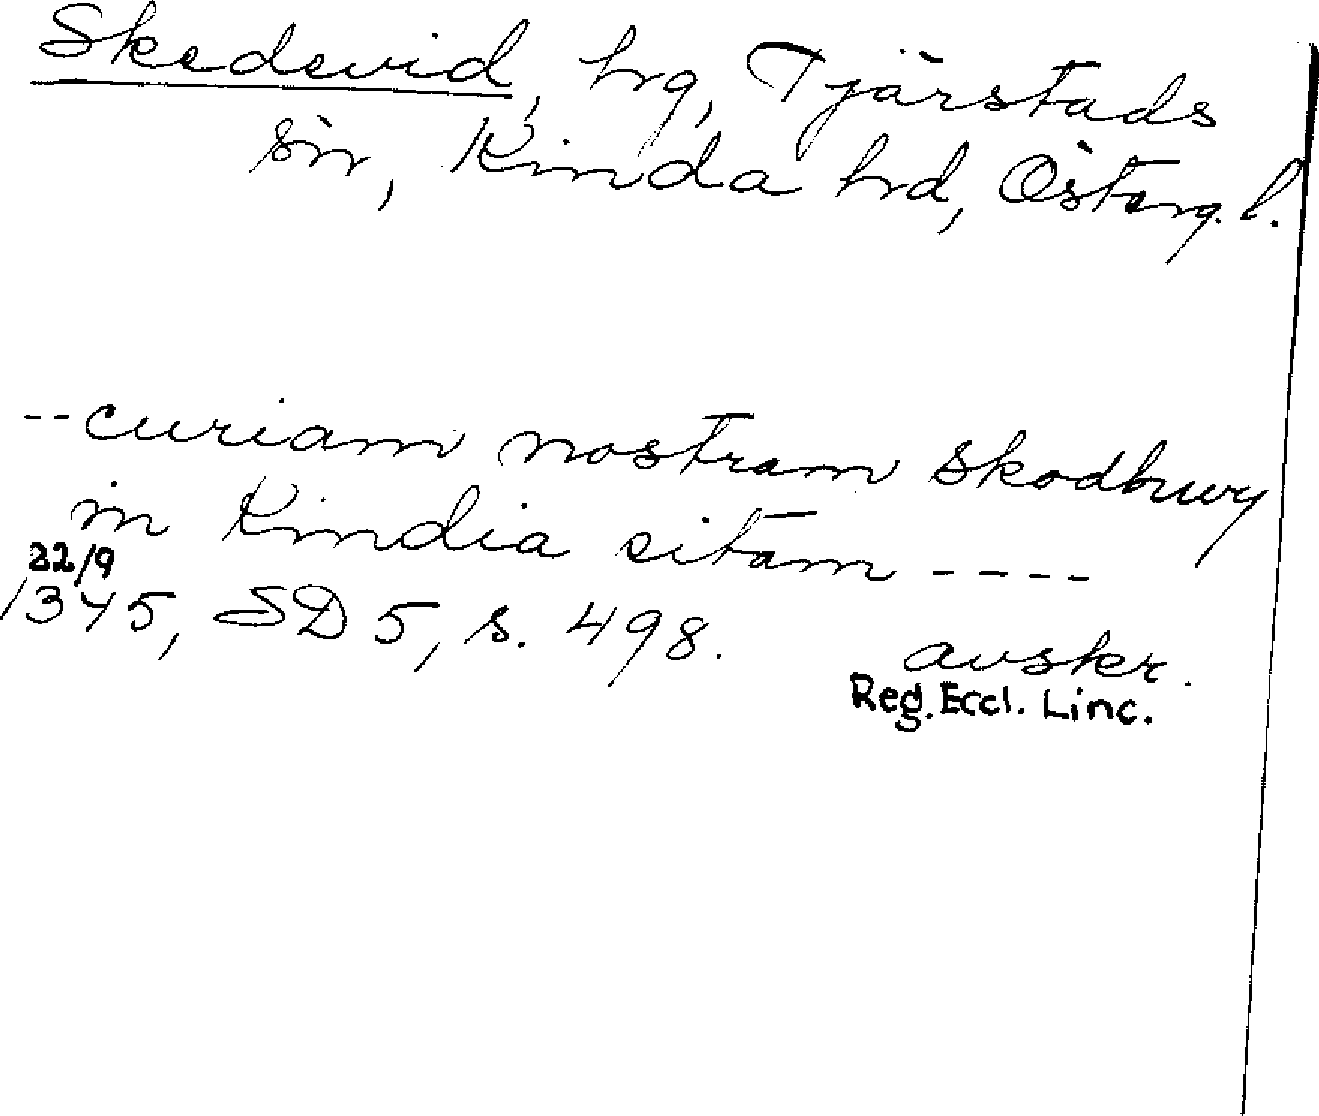 Skedevid, hrg, Tjärstads
sn, Kinda hrd, Österg. l.
-- curiam nostram skodhuvy
in Kindia sitam ----
22/9
1345, SD 5, s. 498.
avskr.
Reg. Eccl. Linc.